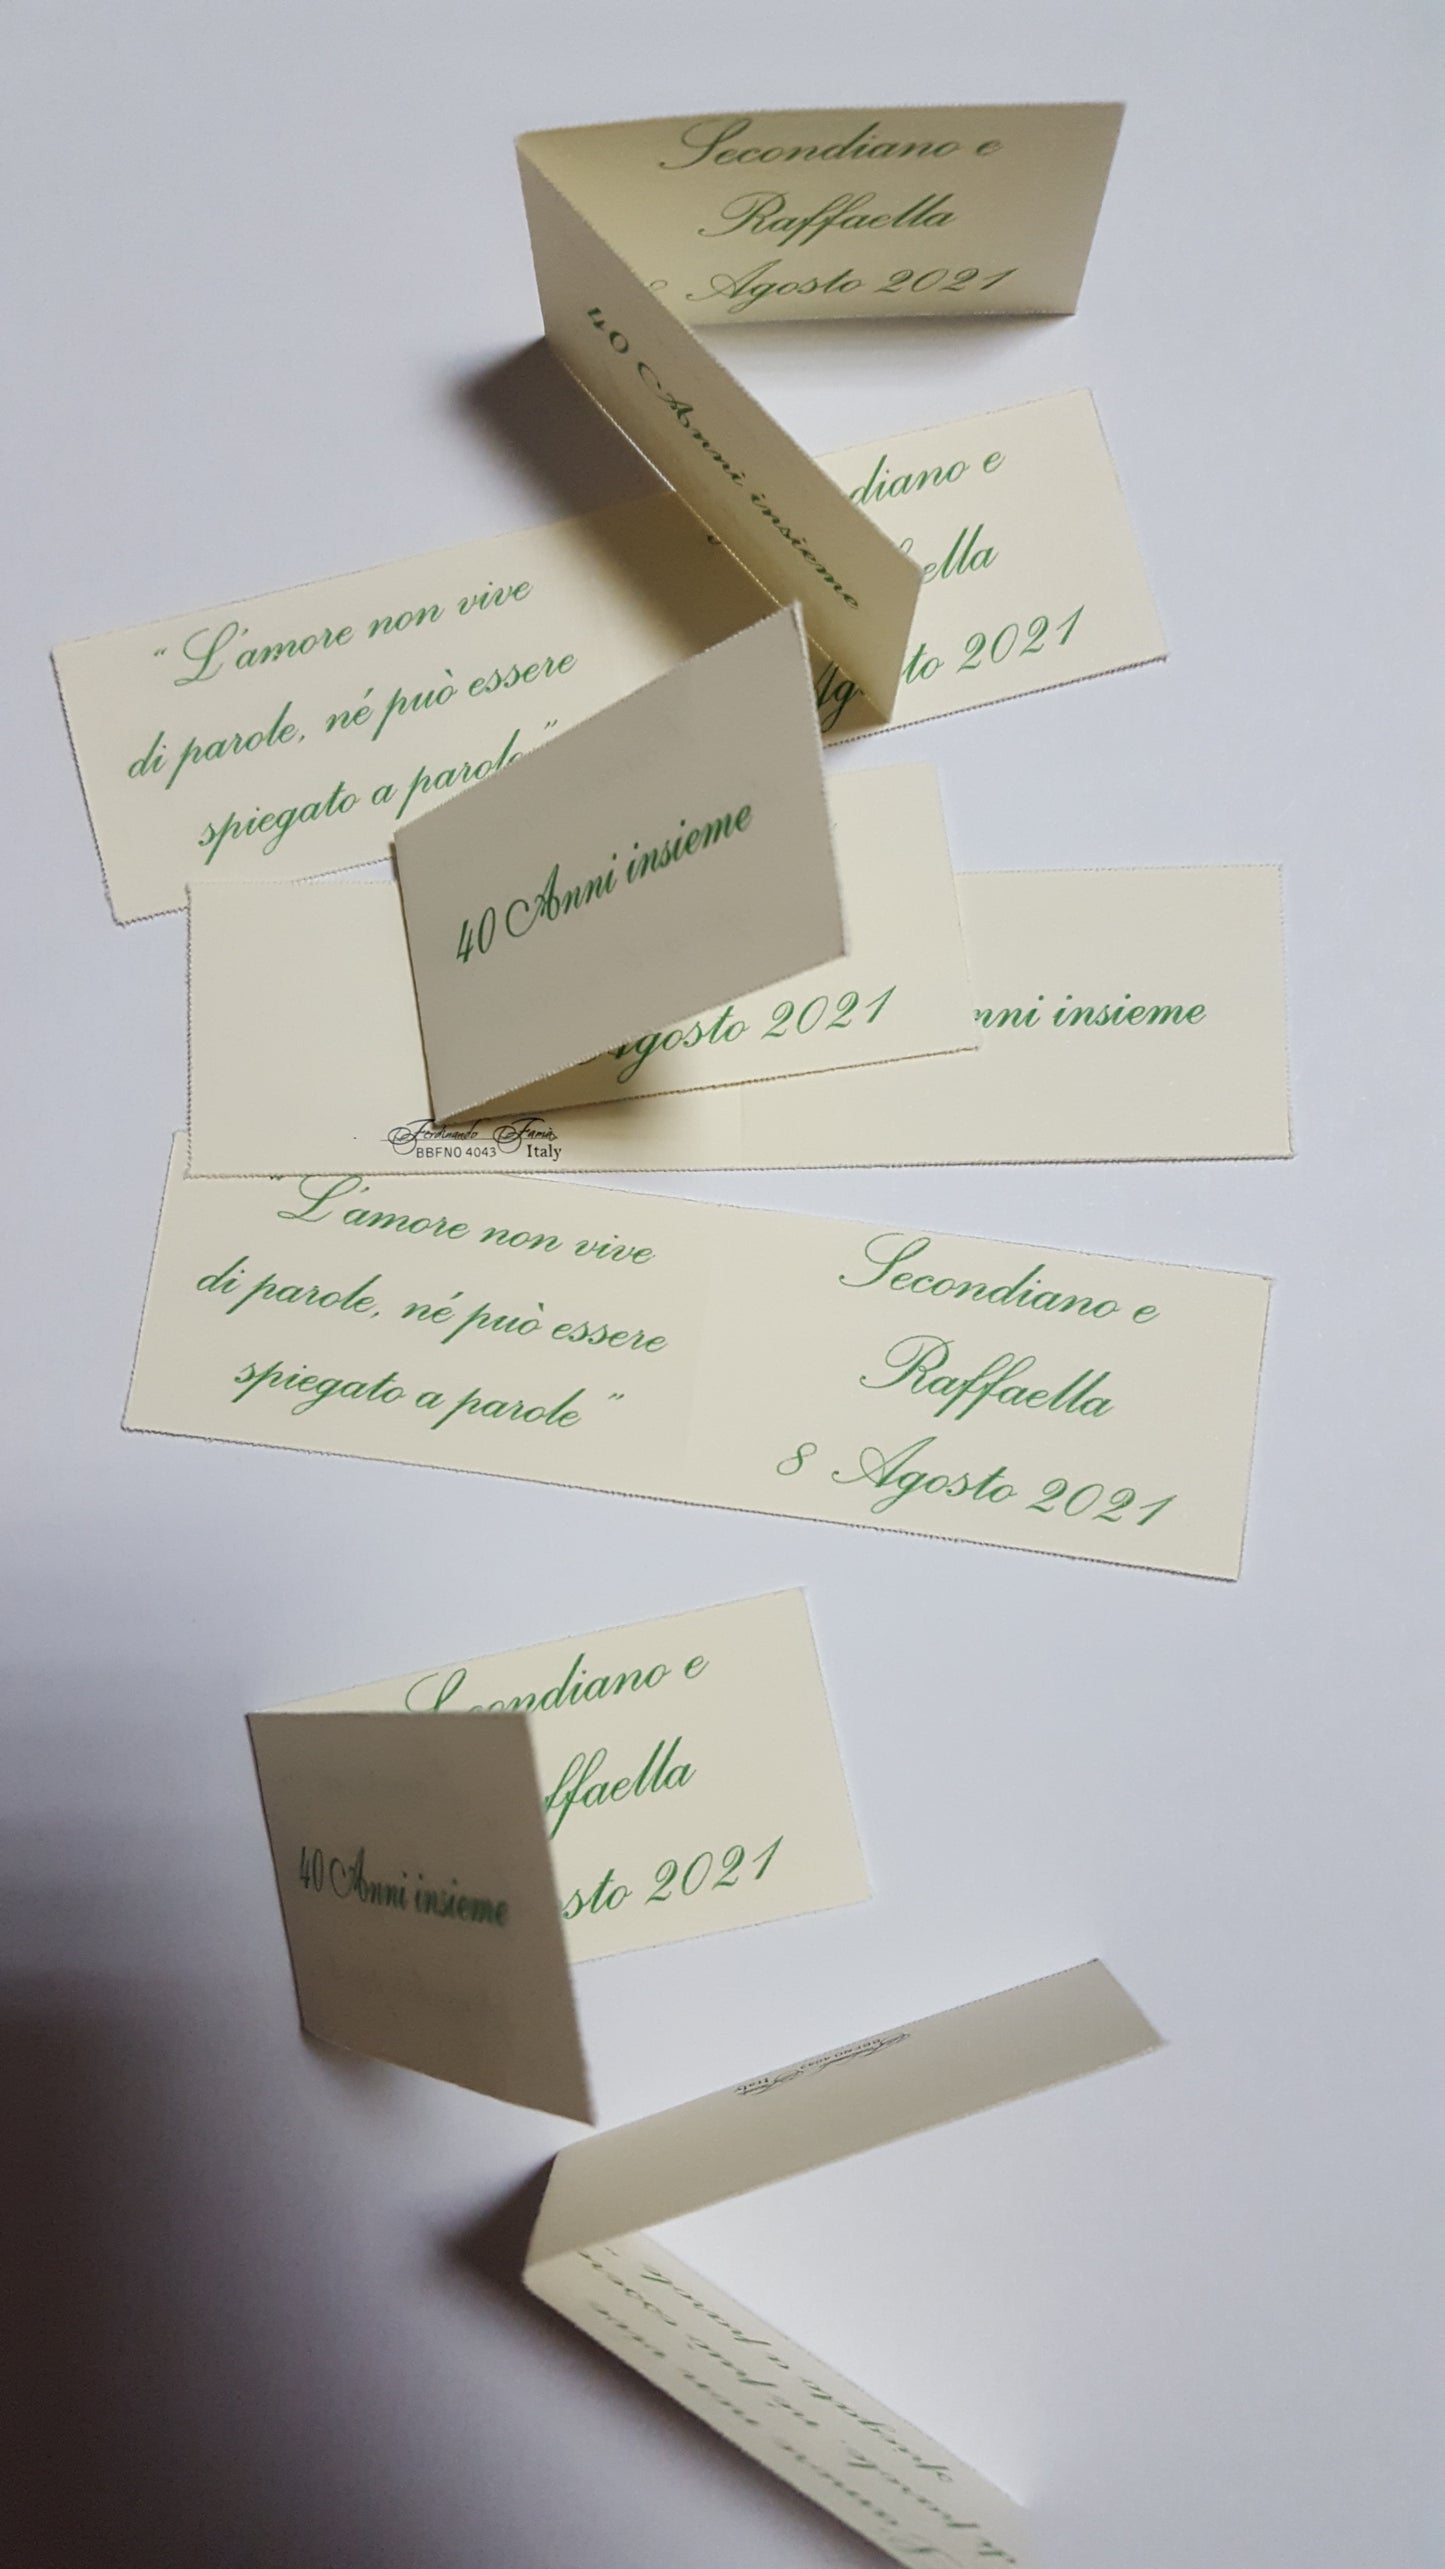 Secondiano e
Raffaella
Agosto 2021
40 Anni insieme
diano e
ella
Ag to 2021
“ L'amore non vive
di parole, né può essere
spiegato a parole ”
40 Anni insieme
Agosto 2021
nni insieme
Ferdinando Famà
BBFNO 4043 Italy
“ L'amore non vive
di parole, né può essere
spiegato a parole ”
Secondiano e
Raffaella
8 Agosto 2021
Secondiano e
ffaella
sto 2021
40 Anni insieme